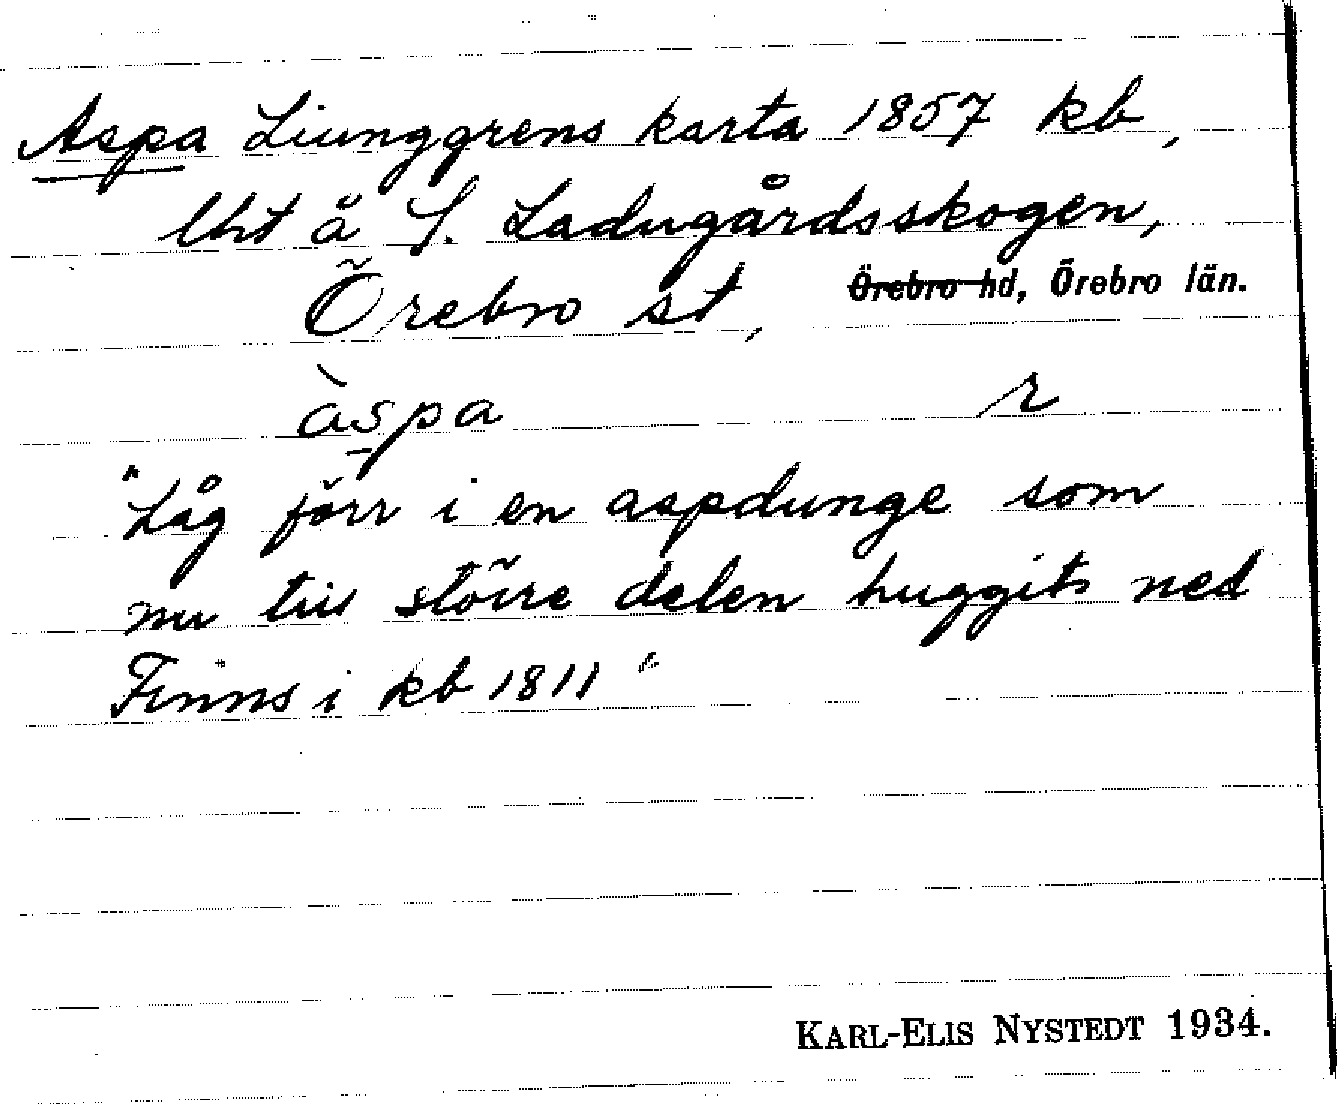 Aspa Liunggrens karta 1857 kb,
lht å S. Ladugårdsskogen,
Örebro st, Örebro hd, Örebro län.
àspa r
"Låg förr i en aspdunge som
nu till större delen huggits ned
Finns i kb 1811"
KARL-ELIS NYSTEDT 1934.